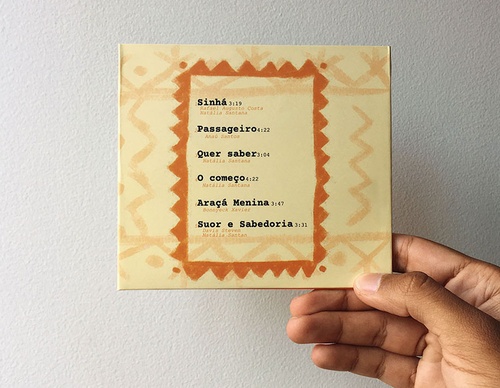 Sinhá 3:19
Rafael Augusto Costa
Natália Santana
Passageiro 4:22
Quer saber 3:04
Natália Santana
O começo 4:22
Natália Santana
Araçá Menina 3:47
Xavier
Suor e Sabedoria 3:31